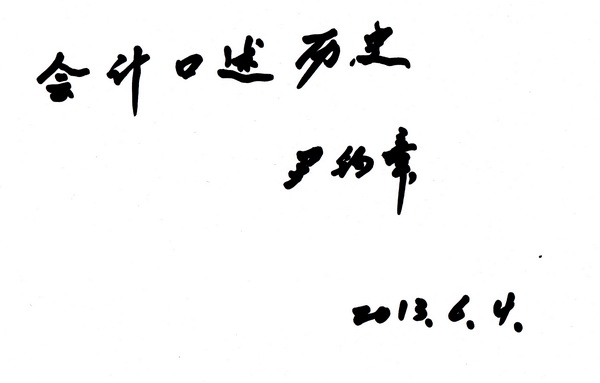 会计口述历史
罗
章
2013.6.4.